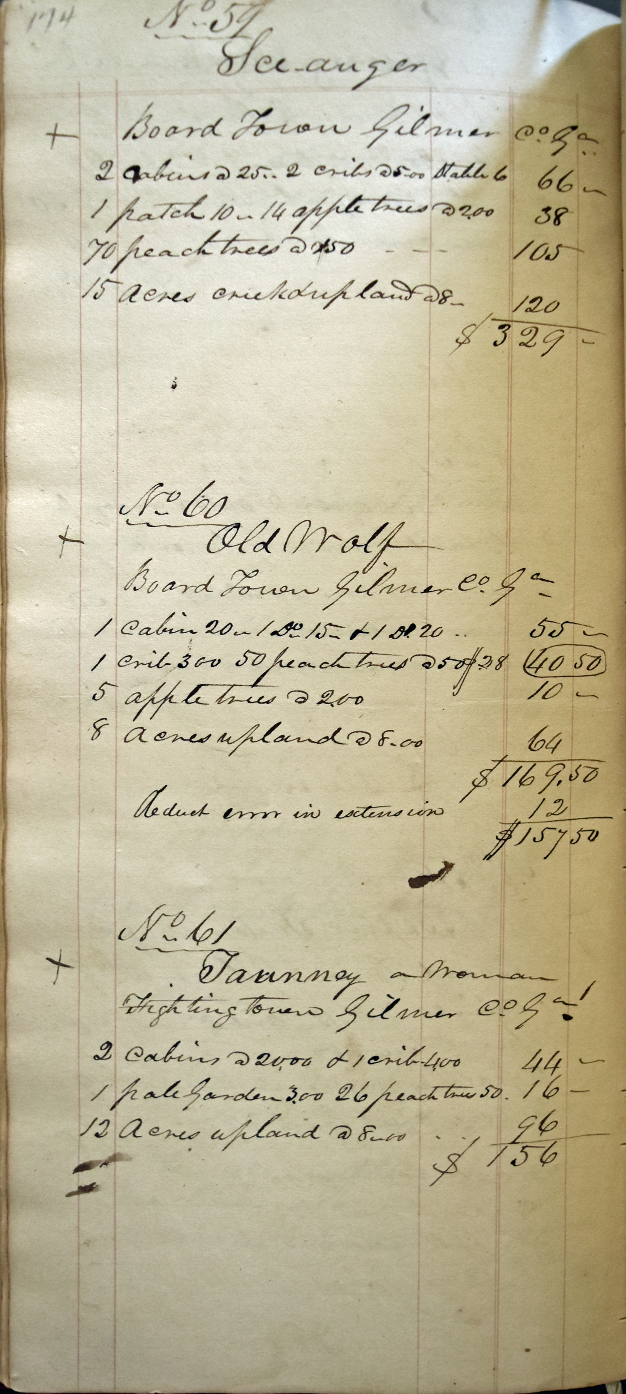 174
No 59
Sce-anger
+ Board Town Gilmer Co Ga
2 cabins @ 25.. 2 cribs @ 5.00 stable 6 66 –
1 patch 10 – 14 apple trees @ 2.00 38
70 peach trees @ 1.50 - - - 105
15 Acres creek & upland @ 8 – 120
$ 329 –
No 60
+ Old Wolf
Board Town Gilmer Co Ga –
1 cabin 20 – 1 Do 15 – & 1 Do 20 .. 55 –
1 crib 3.00 50 peach trees @ 50 $28 40 50
5 apple trees @ 2.00 10 –
8 Acres upland @ 8.00 64
$ 169.50
deduct error in extension 12
$157 50
No 61
+ Taunney a Woman
Fightingtown Gilmer Co Ga
2 cabins @ 20.00 & 1 crib 4.00 44 –
1 pale Garden 3.00 26 peach trees 50. 16 –
12 Acres upland @ 8.00 . . 96
$ 156